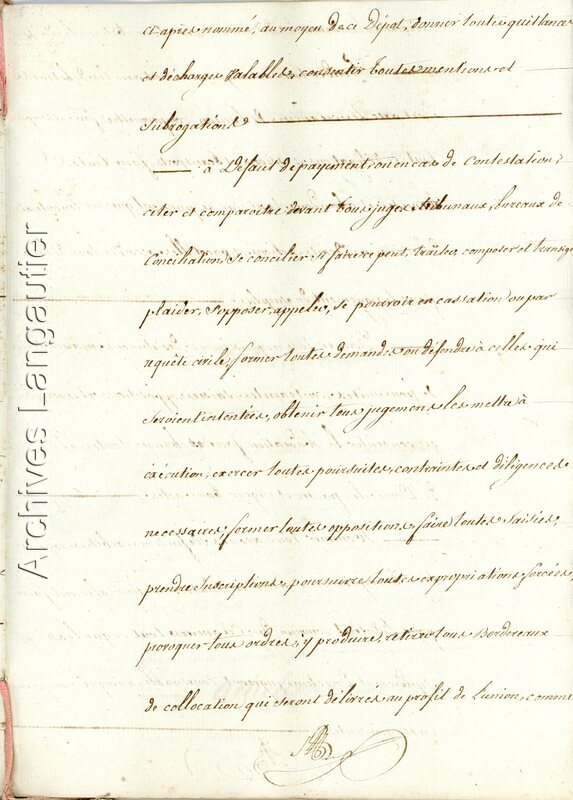 ci après nommé, au moyen de ce Dépot, donner toutes quittances
et décharges Valables, consentir toutes mentions et
Subrogations
à Défaut de payement, ou en cas de Contestation,
citer et comparoitre devant tous juges, tribunaux, bureaux de
Conciliation, se concilier si faire ce peut, traiter, composer et transiger
plaider, s'opposer, appeler, se pourvoir en cassation ou par
requête civile, former toutes demandes ou défendre à celles qui
Seroient intentées, obtenir tous jugemens les mettre à
exécution, exercer toutes poursuites, contraintes et diligences
necessaires, former toutes oppositions, faire toutes Saisies,
prendre Inscriptions, poursuivre toutes expropriations forcées,
provoquer tous ordres, y produire, retirer tous Bordereaux
de collocation qui seront délivrés au profit de l'union, comme
Archives Langautier